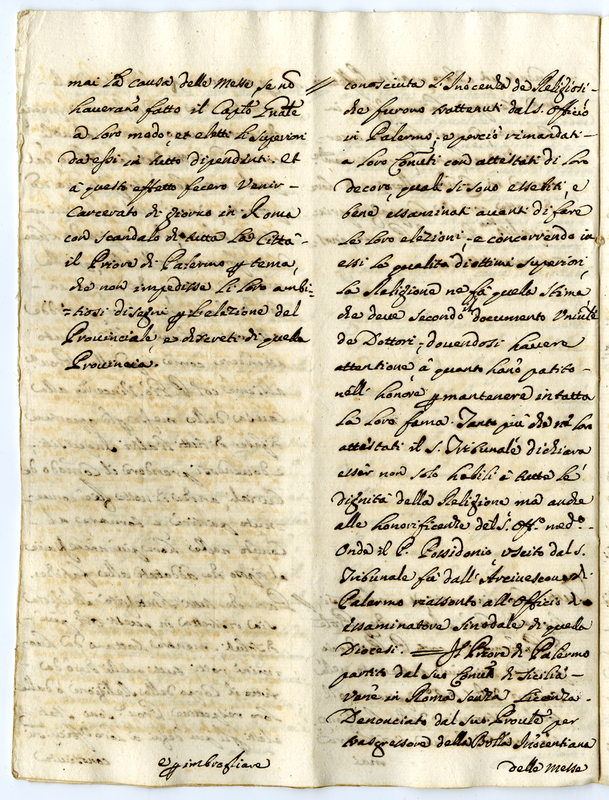 mai la causa delle Messe se nõ
haverano fatto il Capto Gnãte
a loro modo, et eletti li superiori
da essi in tutto dipendenti. et
a questo effetto fecero venir -
Carcerato di giorno in Roma
con scandalo di tutta la Città
il Priore di Palermo p tema,
che non impedisse li loro ambi:
:tiosi disegni p l'elezione del
Provinciale, e discreti di quella
Provincia.
e p imbrogliare
// conosciuta l'Inocenza de Religiosi
che furono trattenuti dal S. Officio
in Palermo, e perciò rimandati -
a loro Conuti con attestati di loro
decoro, quali si sono esebiti, e
bene essaminati avanti di fare
le loro elezioni, e concorrendo in
essi le qualità di ottimi superiori,
la Religione ne fà quella stima
che deve secondo il documento
de Dottori, dovendosi havere
attentione, à quanto hano patito -
nell' honore p mantenere intatta
la loro fama. Tanto più che nè loro
attestati il S. Tribunale dichiara
esser non solo habili à tutte le
dignità della Religione ma anche
alle honorificenze del S. Off.o med.o -
Onde il P. Possidonio uscito dal S.
Tribunale fù dall' Arcivescovo di
Palermo riassonto all' Officio di
essaminatore sinodale di quella
Diocesi. Il Priore di Palermo
partito dal suo Conuto di Sicilia -
vane in Roma senza licenza.
Denonciato dal suo Proule per
trasgressore della Bolla Inocentiana
delle Messe